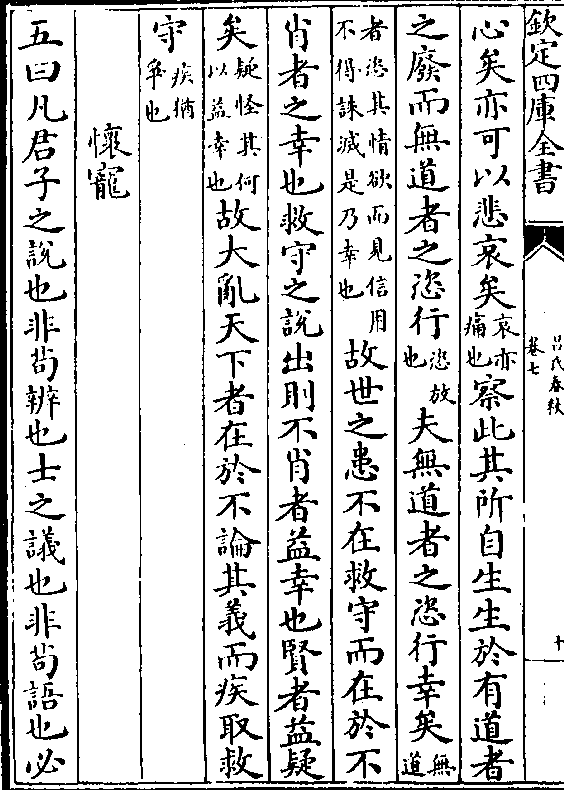 欽定四庫全書
呂氏春秋
卷七
十
心矣亦可以悲哀矣哀亦痛也察此其所自生生於有道者
之廢而無道者之恣行恣放也夫無道者之恣行幸矣無道
者恣其情欲而見信用不得誅滅是乃幸也故世之患不在救守而在於不
肖者之幸也救守之說出則不肖者益幸也賢者益疑
矣疑怪其何以益幸也故大亂天下者在於不論其義而疾取救
守疾猶爭也
懷寵
五曰凡君子之說也非茍辨也士之議也非茍語也必